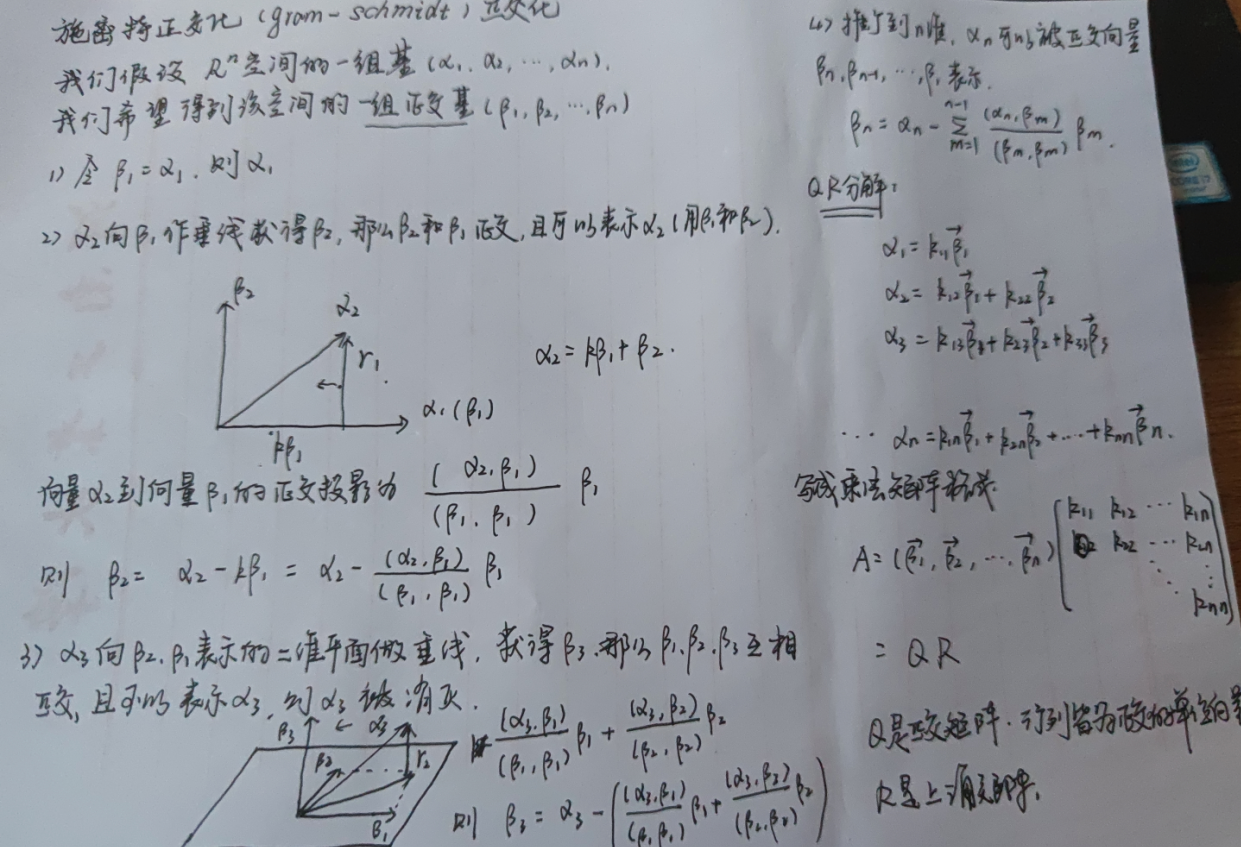 施密特正交化 (gram-schmidt) 正交化
我们假设 Rⁿ空间的一组基 (α₁, α₂, ⋯, αₙ),
我们希望得到该空间的一组正交基 (β₁, β₂, ⋯βₙ)
1) 令 β₁ = α₁, 则 α₁
2) α₂向β₁作垂线获得β₂, 那么β₂和β₁正交, 且可以表示α₂ (用β₁和β₂).
β₂
α₂
r₁
α₂ = kβ₁ + β₂.
α₁ (β₁)
kβ₁
向量α₂到向量β₁的正交投影为 (α₂, β₁)/(β₁, β₁) β₁
则 β₂ = α₂ - kβ₁ = α₂ - (α₂, β₁)/(β₁, β₁) β₁
3) α₃向β₂, β₁表示的二维平面做垂线, 获得β₃, 那么β₁, β₂, β₃互相
正交, 且可以表示α₃, 则α₃被消灭.
β₃
α₃
β₂
r₂
β₁
(α₃, β₁)/(β₁, β₁) β₁ + (α₃, β₂)/(β₂, β₂) β₂
则 β₃ = α₃ - ((α₃, β₁)/(β₁, β₁) β₁ + (α₃, β₂)/(β₂, β₂) β₂)
4) 推广到n维, αₙ可以被正交向量
βₙ, βₙ₋₁, ⋯, β₁表示.
βₙ = αₙ - Σₘ₌₁ⁿ⁻¹ (αₙ, βₘ)/(βₘ, βₘ) βₘ.
QR分解:
α₁ = k₁₁β⃗₁
α₂ = k₁₂β⃗₁ + k₂₂β⃗₂
α₃ = k₁₃β⃗₁ + k₂₃β⃗₂ + k₃₃β⃗₃
⋯ αₙ = k₁ₙβ⃗₁ + k₂ₙβ⃗₂ + ⋯ + kₙₙβ⃗ₙ.
写成乘法矩阵形式
k₁₁ k₁₂ ⋯ k₁ₙ
A = (β⃗₁, β⃗₂, ⋯β⃗ₙ) k₂₂ ⋯ k₂ₙ
⋱ ⋮
kₙₙ
= QR
Q是正交矩阵, 行列皆为正交的单位向量
R是上三角矩阵.
intel